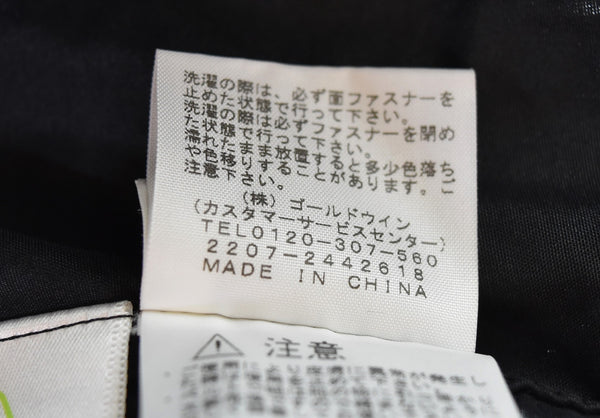 洗濯の際は、必ず面ファスナーを
止めた状態で行って下さい。
洗濯の際は必ずファスナーを閉め
た状態で行って下さい。
濡れたまま放置すると多少色落ち
や色移りすることがあります。ご
注意下さい。
(株) ゴールドウイン
(カスタマーサービスセンター)
TEL0120-307-560
2207-2442618
MADE IN CHINA
注意